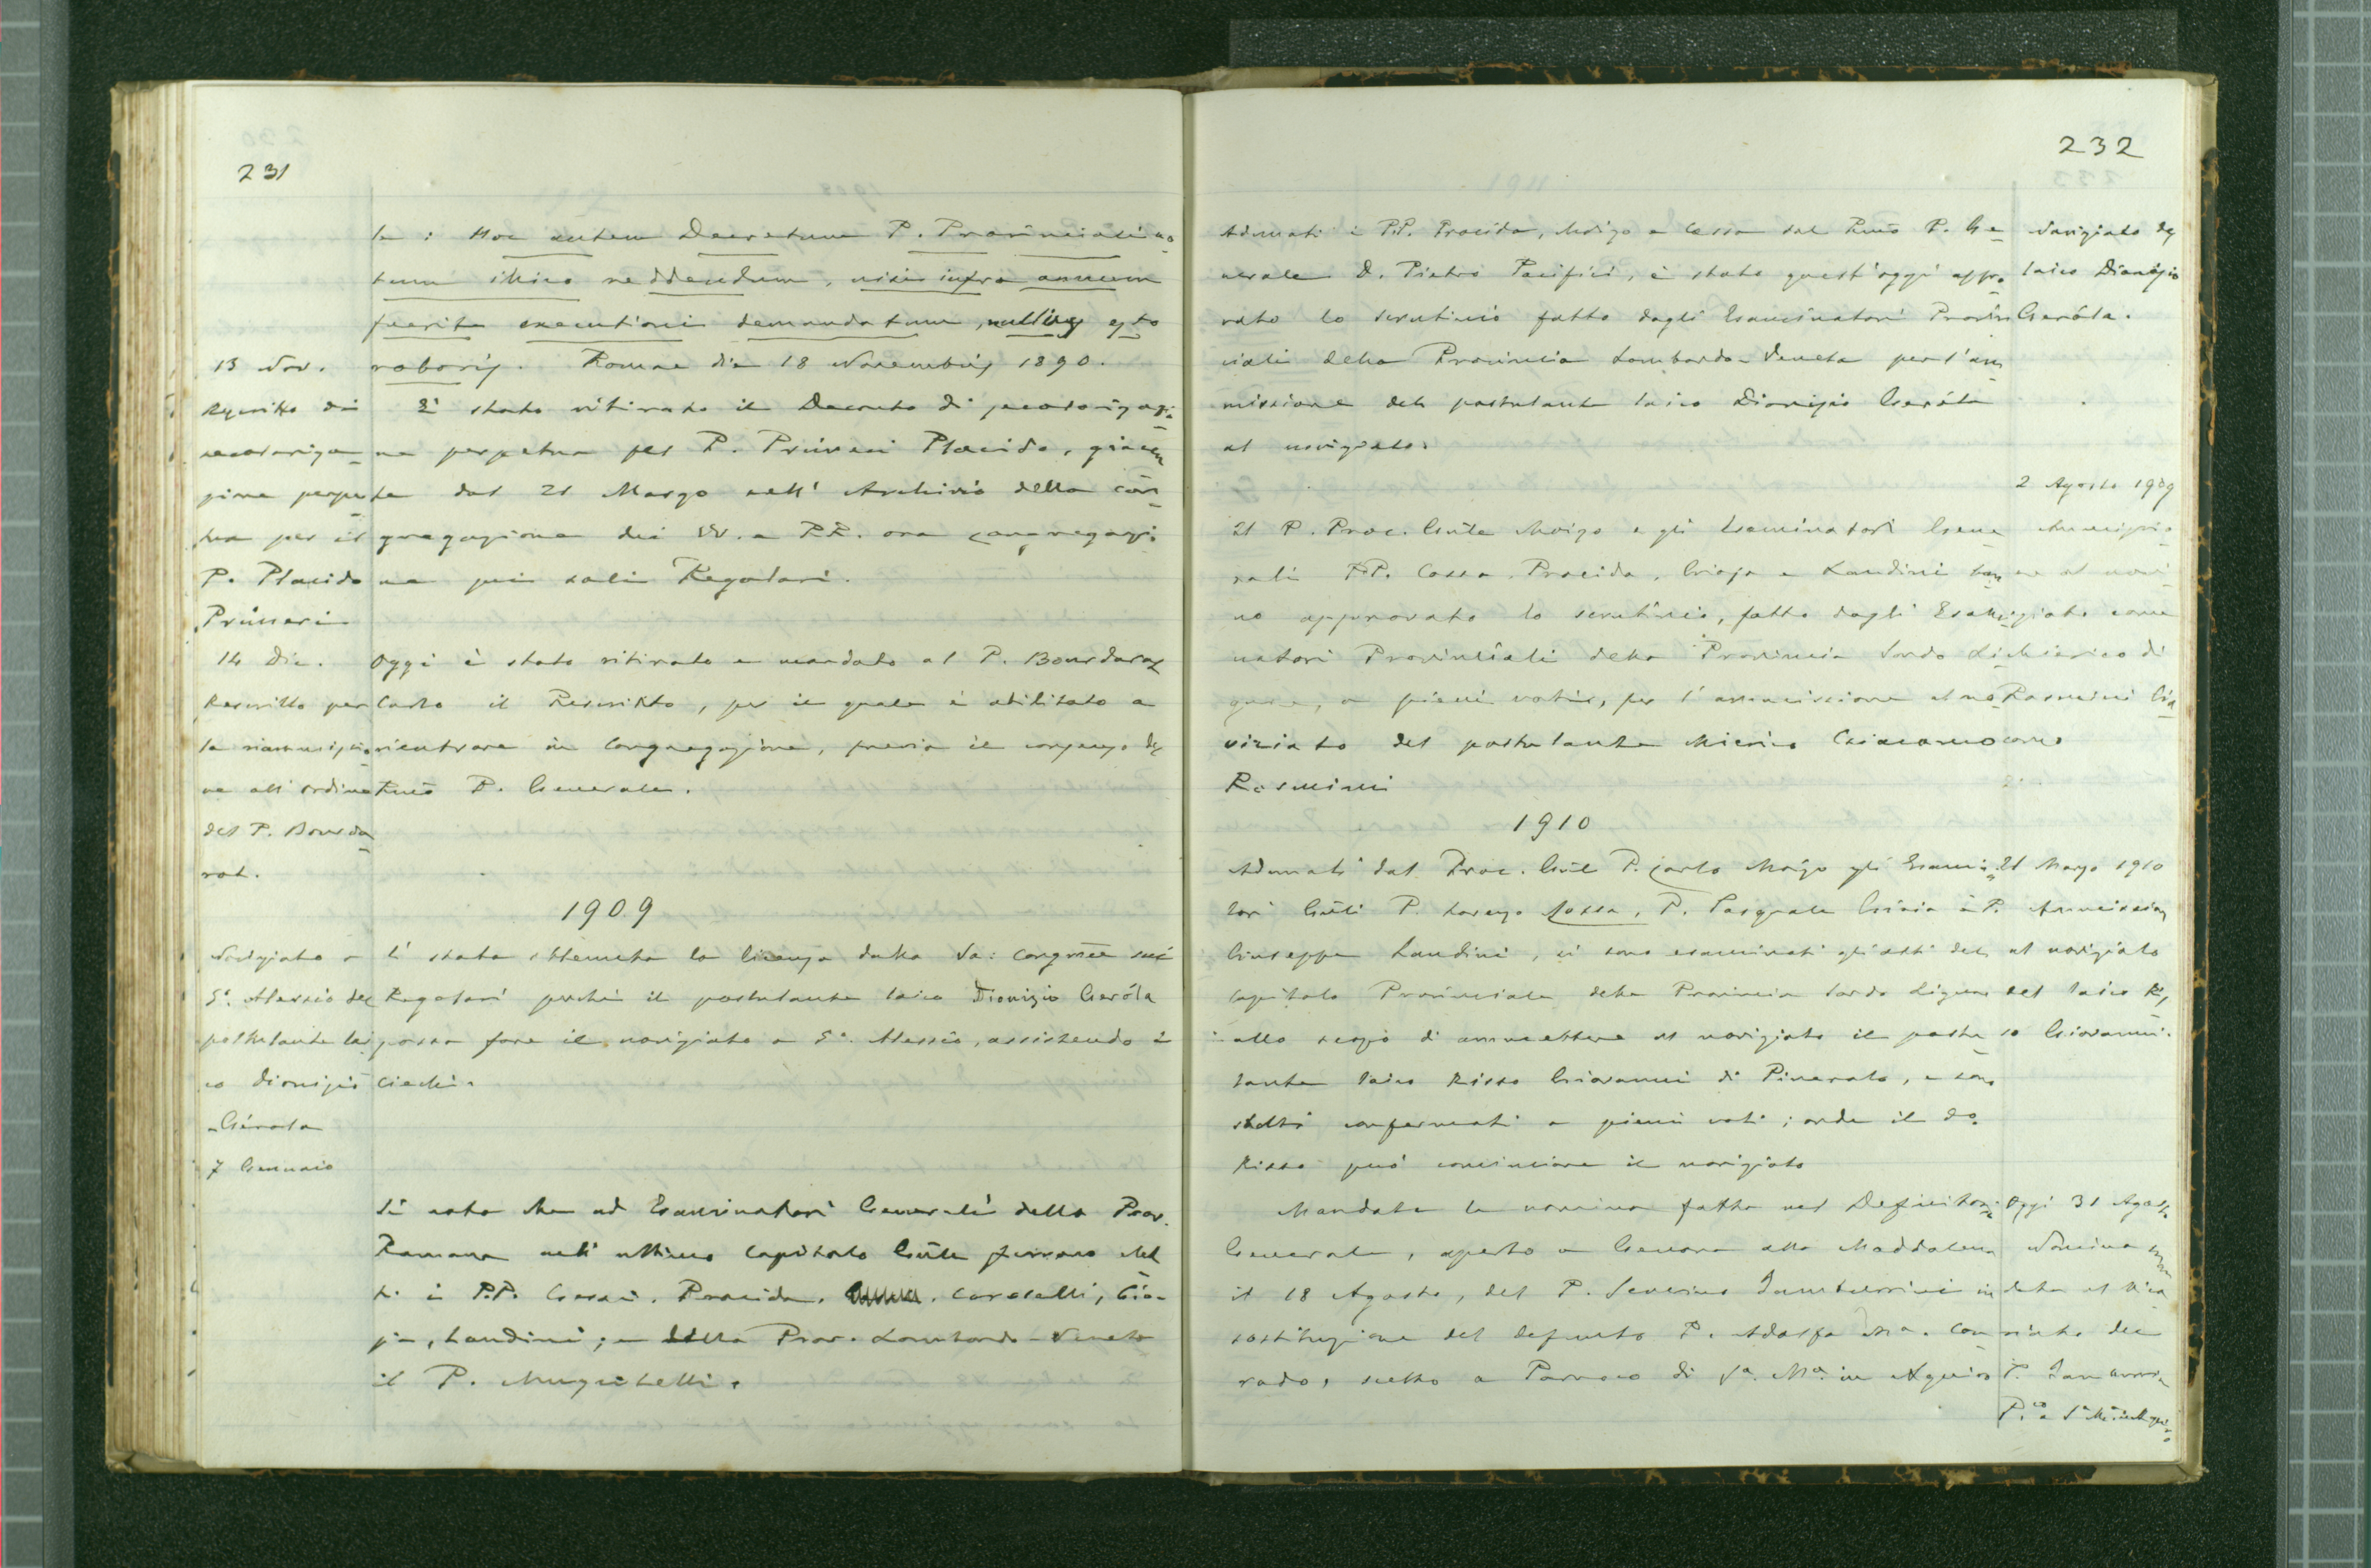 231
le: Hoc autem Decretum P. Provinciali no-
tum illico reddendum, nisi infra annum
fuerit executioni demandatum, nullius esto
roboris. Romae die 18 Novembris 1890.
13 Nov.
Rescritto di
secolarizza-
zione perpe-
tua per il
P. Placido
Primeri
È stato ritirato il Decreto di secolarizzazio-
ne perpetua pel P. Primeri Placido, giacen-
te dal 21 Marzo nell' Archivio della con-
gregazione dei VV. e RR. ora congregazio-
ne pei soli Regolari.
14 Dic.
Rescritto per
la riammissio-
ne all' ordine
del P. Bourda-
rot.
Oggi è stato ritirato e mandato al P. Bourdarot
Carlo il Rescritto, per il quale è abilitato a
rientrare in Congregazione, previo il consenso del
Rmo P. Generale.
1909
Noviziato a
S. Alessio del
postulante lai-
co Dionisio
Gerola
7 Gennaio
È stata ottenuta la licenza dalla Sa: Congne sui
Regolari perchè il postulante laico Dionisio Geróla
possa fare il noviziato a S. Alessio, assistendo i
ciechi.
Si nota che ad Esaminatori Generali della Prov.
Romana nell' ultimo Capitolo Gnle furono elet-
ti i P.P. Cossa, Procida, Coratelli, Gio-
ja, Landini; e della Prov. Lombardo-Veneta
il P. Mugitelli.
232
Adunati i PP. Procida, Moizo e Cossa dal Rmo P. Ge-
nerale D. Pietro Pacifici, è stato quest'oggi appro-
vato lo scrutinio fatto dagli Esaminatori Provin-
ciali della Provincia Lombardo-Veneta per l'am-
missione del postulante laico Dionisio Geróla
al noviziato.
Noviziato del
laico Dionisio
Geróla.
2 Agosto 1909
Ammissio-
ne al novi-
ziato come
chierico di
Rosmini Gia-
como
Il P. Proc. Gnle Moizo e gli Esaminatori Gene-
rali PP. Cossa, Procida, Gioja e Landini han-
no approvato lo scrutinio, fatto dagli Esami-
natori Provinciali della Provincia Sardo Li-
gure, a pieni voti, per l'ammissione al no-
viziato del postulante chierico Giacomo
Rosmini
1910
Adunati dal Proc. Gnle P. Carlo Moizo gli Esamina-
tori Gnli P. Lorenzo Cossa, P. Pasquale Gioia e P.
Giuseppe Landini, si sono esaminati gli atti del
Capitolo Provinciale della Provincia Sardo Ligure
allo scopo di ammettere al noviziato il postu-
lante laico Risso Giovanni di Pinerolo, e sono
stati confermati a pieni voti; onde il do
Risso può cominciare il noviziato
21 Marzo 1910
Ammissione
al noviziato
del laico Ris-
so Giovanni.
Mandata la nomina fatta nel Definitorio
Generale, aperto a Genova alla Maddalena
il 18 Agosto, del P. Severino Tamburrini in
sostituzione del defunto P. Adolfo Ma. Con-
rado, scelto a Parroco di Sa. Ma. in Aquiro
Oggi 31 Agosto
Nomina man-
data al Vica-
riato del
P. Tamburrini
P.co a Sa Ma in Aquiro